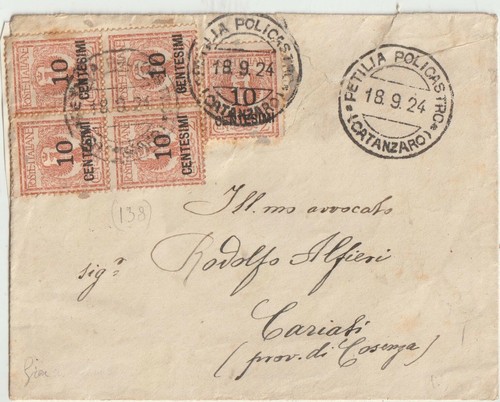 10 CENTESIMI
10 CENTESIMI
10 CENTESIMI
10 CENTESIMI
10 CENTESIMI
PETILIA POLICASTRO
18.9.24
(CATANZARO)
PETILIA POLICASTRO
18.9.24
(CATANZARO)
18.9.24
(138)
Ill.mo avvocato
sigr Rodolfo Alfieri
Cariati
(prov. di Cosenza)